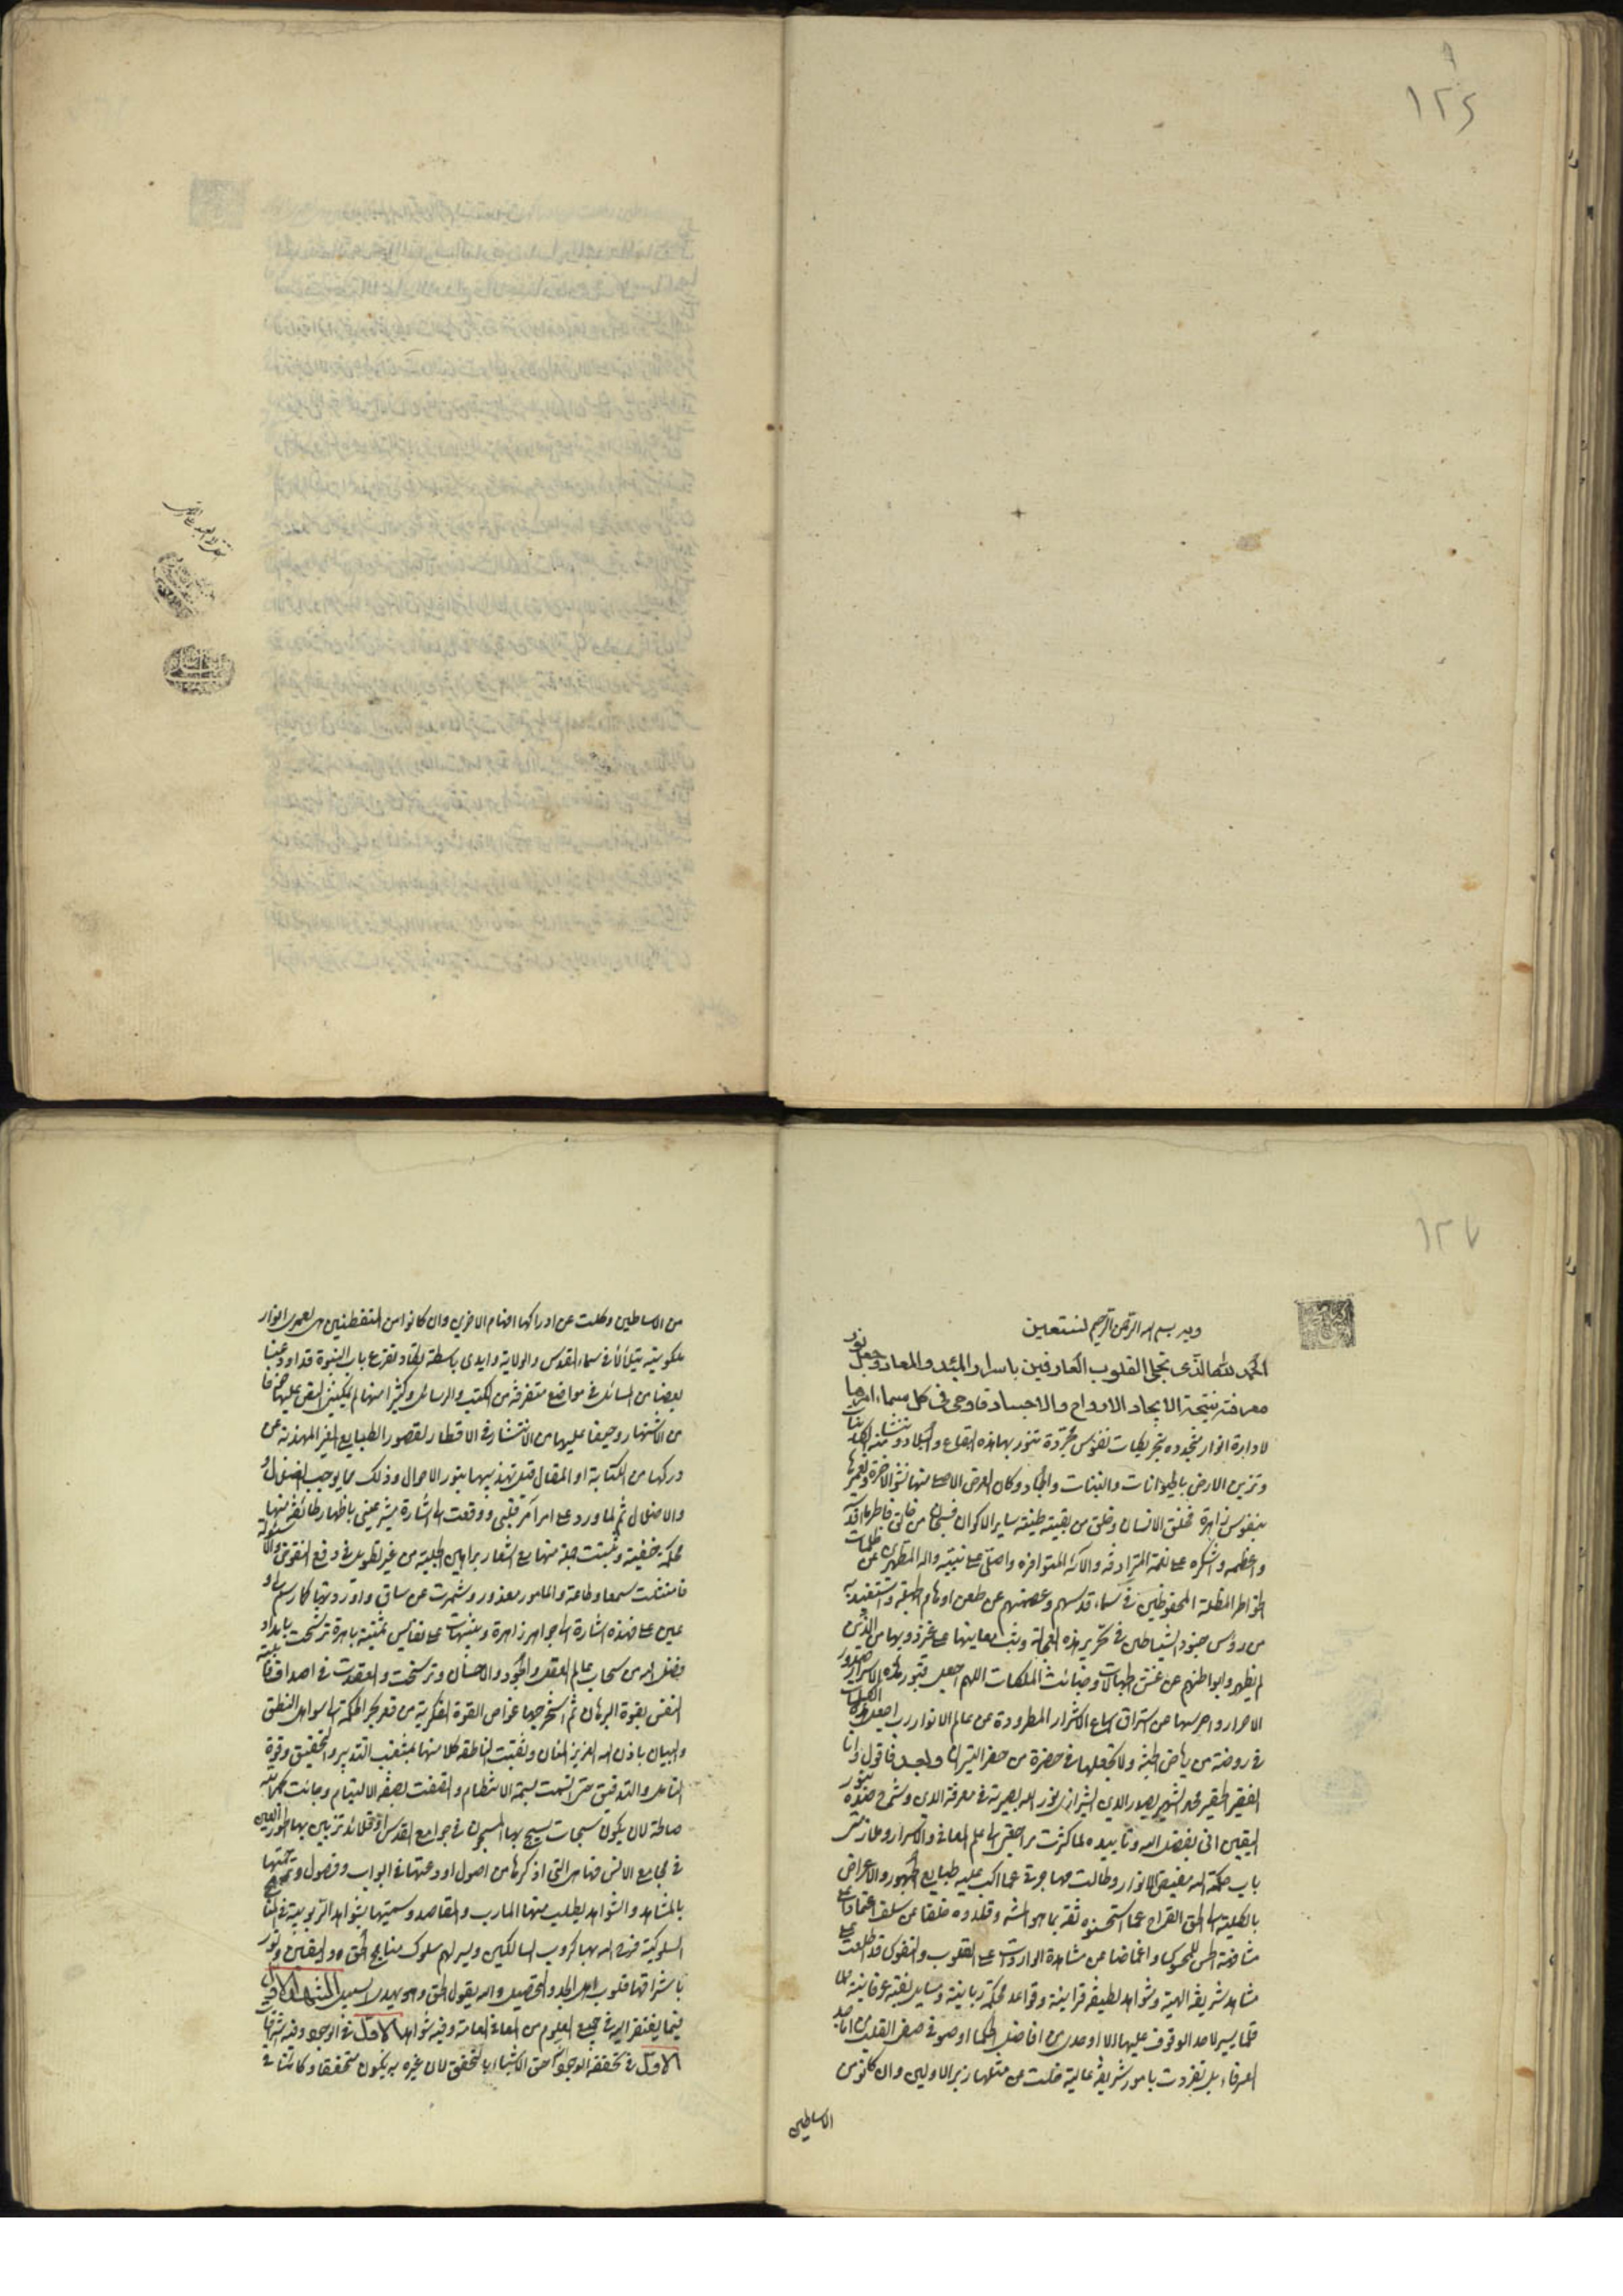 ١٢٤
١٢٧
وبه بسم الله الرحمن الرحيم نستعين
الحمد لله الذى تجلى القلوب العارفين باسرار المبدء والمعاد وجعل نور
معرفته نتيجة الايجاد الارواح والاجساد فاوحى فى كل سماء امرها
لادارة انوار متجددة بتحريكات نفوس مجردة تتنور بهذه البقاع والبلاد وتنشا منه الكائنات
وتزين الارض بالحيوانات والنبات والجماد وكان الغرض الاصلى منها نشو الاخرة وتعميرها
بنفوس زاهرة فخلق الانسان وخلق من بقية طينته ساير الاكوان فسبحان من خالق فاطر ما اقدسه
واعظمه واشكره على نعمه المترادفة والائه المتوافرة واصلى على نبيه واله المتطهرين عن ظلمات
الخواطر المظلمة المحفوظين فى سماء قدسهم وعصمتهم عن طعن اوهام الجهلة واستعيذ به
من رؤس جنود الشياطين فى تحرير هذه العجالة وبث معاينها على غير ذويها من الذين
لم يطهروا بواطنهم عن غش الجهالات وخبائث الملكات اللهم اجعل قبور هذه الاسرار صدور
الاحرار واحرسها عن استراق اسماع الاشرار المطرودة عن عالم الانوار رب اجعل هذه الكلمات
فى روضة من رياض الجنة ولا تجعلها فى حفرة من حفر النيران وبعد فاقول وانا
الفقير الحقير محمد الشهير بصدر الدين الشيرازى نور الله بصيرته فى معرفة الدين وشرح صدره بنور
اليقين انى بفضل الله وتاييده لما كثرت مراجعتى الى عالم المعانى والاسرار وملازمتى
باب حكمة الله مفيض الانوار وطالت مهاجرتى عما اكب عليه طبايع الجمهور والاعراض
بالكلية الى الحق القراح عما استحسنوه ثقة بما هو المشهور وقلدوه خلفا عن سلف اعتمادا على
مشافهة الحس للمحسوس واغماضا عن مشاهدة الواردات على القلوب والنفوس قد اطلعت على
مشاهد شريفة الهية وشواهد لطيفة قرانية وقواعد محكمة ربانية ومسايل نفية عرفانية قلما
قلما تيسر لاحد الوقوف عليها الا اوحدى من افاضل الحكما او صوفى صفى القلب من اماجد
العرفاء بل تفردت بامور شريفة عالية خلت عن مثلها زبر الاولين وان كانوا من
الاساطين
من الاساطين وكلت عن ادراكها افهام الاخرين وان كانوا من المتفطنين هى لعمرى انوار
ملكوتية يتلألأ فى سماء القدس والولاية وايدى باسطة يكاد تقرع باب النبوة قد اودعنا
بعضا من المسائل فى مواضع متفرقة من الكتب والرسائل وكثيرا منها لم يمكننى النص عليها خوفا
من الاشتهار وحيفا عليها من الانتشار فى الاقطار لقصور الطبايع الغير المهذبة عن
دركها من الكتابة او المقال قبل تهذيبها بنور الاحوال وذلك مما يوجب الضلال
والاضلال ثم لما ورد على امر امر قلبى ووقعت الى اشارة مشير غيبى باظهار طائفة منها
لحكمة خفية وتبينت جملة منها مع اشعار براهين الجلية من غير تطويل فى دفع النقوض والاسئولة
فامتثلت سمعا وطاعة والمامور معذور وشمرت عن ساق واوردتها كما رسم لى
نبهت على نفايس ثمينة باهرة ترشحت بامداد
فضل الله من سحاب عالم العقل والجود والاحسان وترسخت وانعقدت فى اصداف قابلية
النفس بقوة البرهان ثم استخرجها غواص القوة الفكرية من قعر بحر الحكمة الى سواحل النطق
والبيان باذن الله العزيز المنان وثقبت الناطقة كلا منها بمثقب التدبير والتحقيق وقوة
التامل والتدقيق حتى اتسمت بسمة الانتظام واتصفت بصفة الالتيام وجائت بحمد الله
صالحة لان يكون سبحات يسبح بها المسبحون فى جوامع القدس او قلائد تزين بها الحور العين
فى مجامع الانس فها هى التى اذكرها من اصول اودعتها فى ابواب وفصول وترجمتها
بالمشاهد والشواهد ليطلب منها المارب والمقاصد وسميتها بشواهد الربوبية فى المناهج
السلوكية فنفع الله بها كروب السالكين ويسر لهم سلوك مناهج الحق واليقين ونور
باشراقها قلوب اهل الجد والتحصيل والله يقول الحق وهو يهدى السبيل المشهد الاول
فيما يفتقر اليه فى جميع العلوم من المعانى العامة وفيه شواهد الاول فى الوجود وفيه اشراقات
الاول فى تحققه الوجود احق الاشياء بالتحقق لان غيره به يكون متحققا وكائنا فى